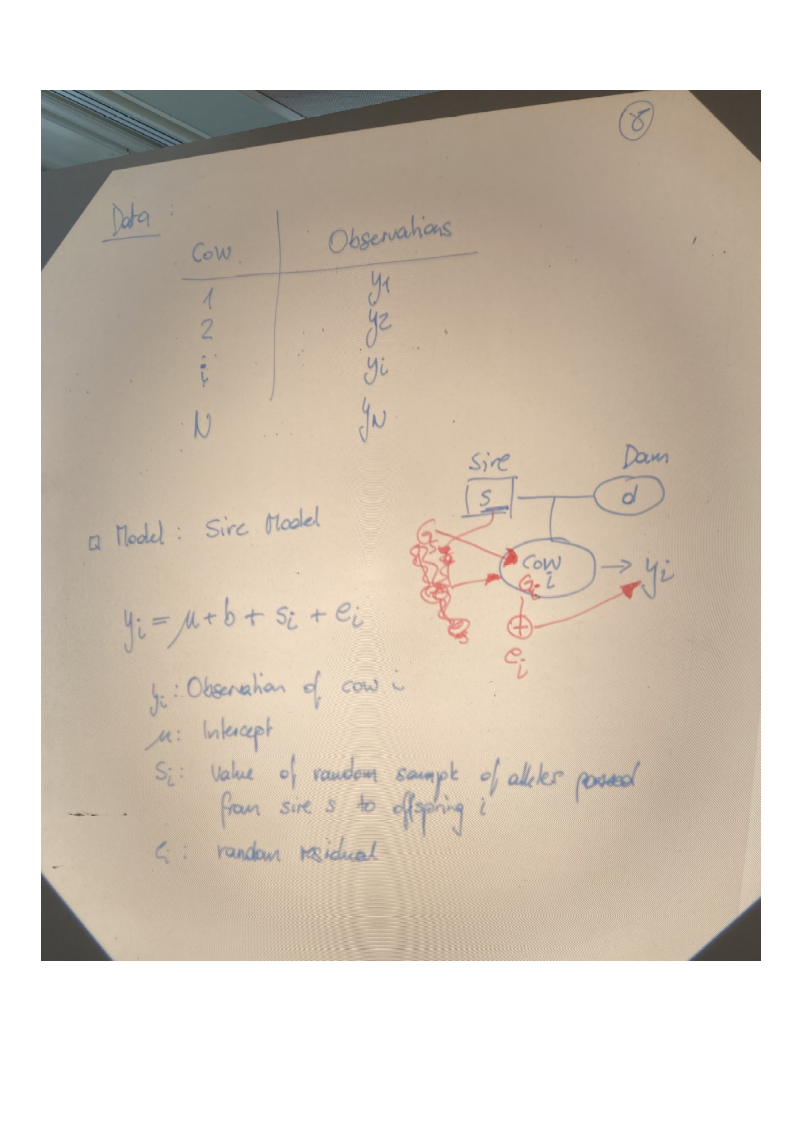 8
Data :
Cow Observations
1 y1
2 y2
i yi
N yN
Sire Dam
s d
Model : Sire Model
cow i → yi
yi = μ + b + si + ei
+
ei
yi : Observation of cow i
μ : Intercept
Si : Value of random sample of alleles passed
from sire s to offspring i
ei : random residual